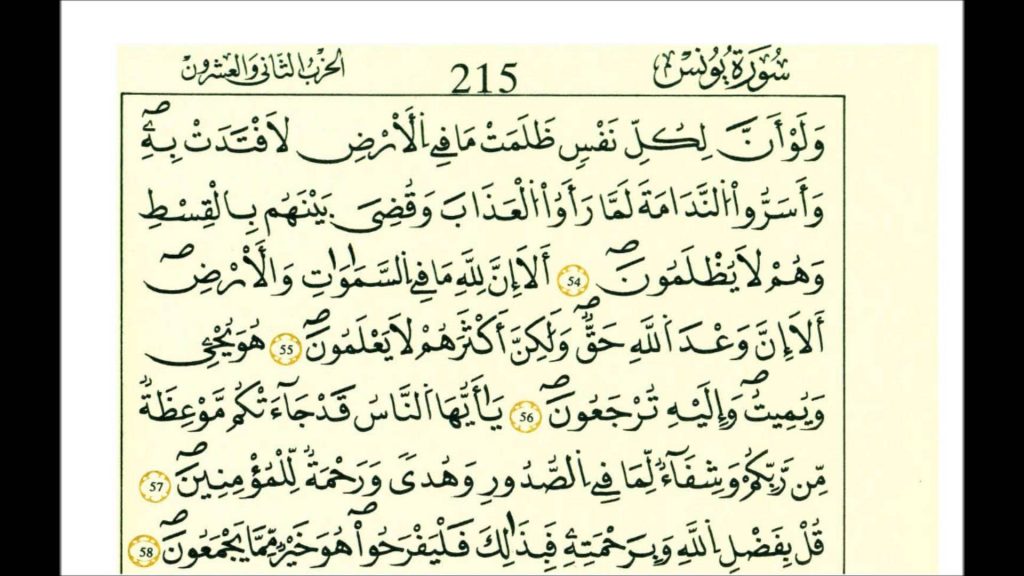 سُورَةُ يُونُسَ 215 الحزب الثاني والعشرون
وَلَوْ أَنَّ لِكُلِّ نَفْسٍ ظَلَمَتْ مَا فِي اِ۬لَارْضِ لَافْتَدَتْ بِهِۦۖ
وَأَسَرُّواْ اُ۬لنَّدَامَةَ لَمَّا رَأَوُاْ اُ۬لْعَذَابَ وَقُضِيَ بَيْنَهُم بِالْقِسْطِ
وَهُمْ لَا يُظْلَمُونَۖ 54 أَلَا إِنَّ لِلهِ مَا فِي اِ۬لسَّمَٰوَٰتِ وَالْأَرْضِۖ
أَلَا إِنَّ وَعْدَ اَ۬للَّهِ حَقّٞۖ وَلَٰكِنَّ أَكْثَرَهُمْ لَا يَعْلَمُونَۖ 55 هُوَ يُحْيِۦ
وَيُمِيتُۖ وَإِلَيْهِ تُرْجَعُونَۖ 56 يَٰأَيُّهَا اَ۬لنَّاسُ قَدْ جَآءَتْكُم مَّوْعِظَةٞ
مِّن رَّبِّكُمْ وَشِفَآءٞ لِّمَا فِي اِ۬لصُّدُورِ وَهُدىٗ وَرَحْمَةٞ لِّلْمُؤْمِنِينَۖ 57
قُلْ بِفَضْلِ اِ۬للَّهِ وَبِرَحْمَتِهِۦ فَبِذَٰلِكَ فَلْيَفْرَحُواْۖ هُوَ خَيْرٞ مِّمَّا يَجْمَعُونَۖ 58